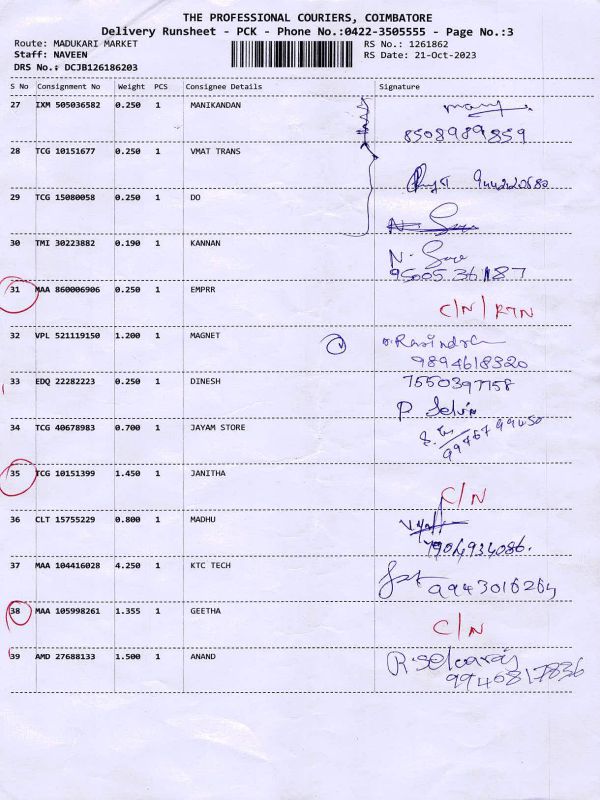 THE PROFESSIONAL COURIERS, COIMBATORE
Delivery Runsheet - PCK - Phone No.:0422-3505555 - Page No.:3
Route: MADUKARI MARKET RS No.: 1261862
Staff: NAVEEN RS Date: 21-Oct-2023
DRS No.: DCJB126186203
S No Consignment No Weight PCS Consignee Details Signature
27 IXM 505036582 0.250 1 MANIKANDAN
8508989859
28 TCG 10151677 0.250 1 VMAT TRANS
29 TCG 15080058 0.250 1 DO
30 TMI 30223882 0.190 1 KANNAN
95005 36187
31 MAA 860006906 0.250 1 EMPRR C/N/RTN
32 VPL 521119150 1.200 1 MAGNET
9894618320
33 EDQ 22282223 0.250 1 DINESH 7550397158
P Selvin
34 TCG 40678983 0.700 1 JAYAM STORE
99467 99450
35 TCG 10151399 1.450 1 JANITHA
C/N
36 CLT 15755229 0.800 1 MADHU
7904934086.
37 MAA 104416028 4.250 1 KTC TECH
9943016264
38 MAA 105998261 1.355 1 GEETHA
C/N
39 AMD 27688133 1.500 1 ANAND R. Selvaraj
9940817836